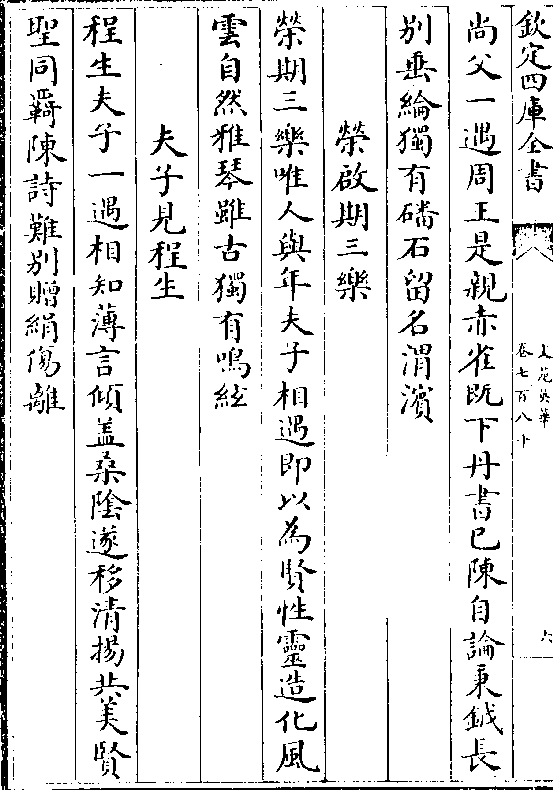 欽定四庫全書
文苑英華
卷七百八十
六
尚父一遇周王是親赤雀既下丹書已陳自論秉鉞長
別垂綸獨有磻石留名渭濱
榮啟期三樂
榮期三樂唯人與年夫子相遇即以為賢性靈造化風
雲自然雅琴雖古獨有鳴絃
夫子見程生
程生夫子一遇相知薄言傾盖桑陰遂移清揚共美賢
聖同覊陳詩難别贈絹傷離